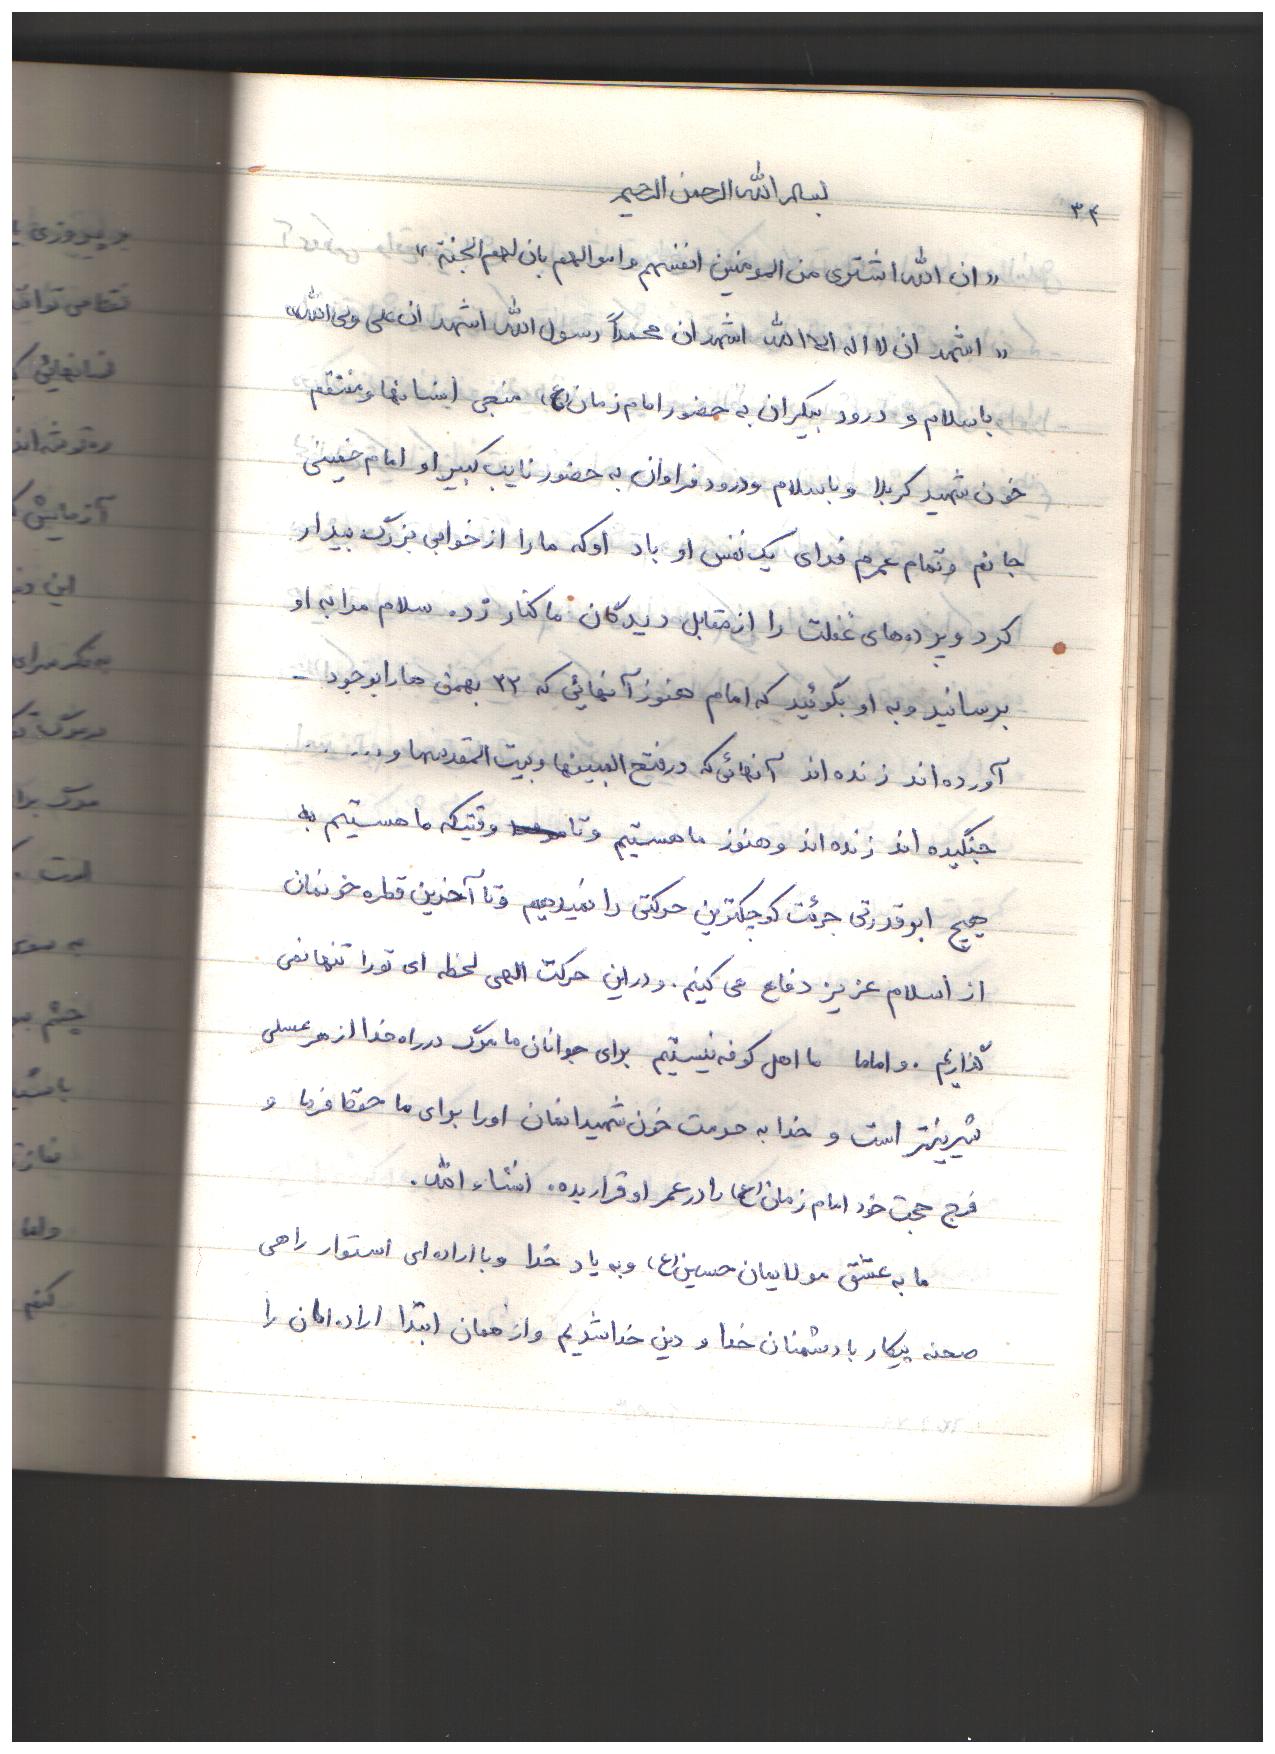 ۳۴
بسم الله الرحمن الرحیم
« ان الله اشتری من المومنین انفسهم و اموالهم بان لهم الجنة »
« اشهد ان لا اله الا الله اشهد ان محمداً رسول الله اشهد ان علی ولی الله »
با سلام و درود بیکران به حضور امام زمان (عج) منجی انسانها و منتقم
خون شهید کربلا و با سلام و درود فراوان به حضور نایب کبیر او امام خمینی
جانم و تمام عمرم فدای یک نفس او باد او که ما را از خوابی بزرگ بیدار
کرد و پرده‌های غفلت را از مقابل دیدگان ما کنار زد. سلام مرا به او
برسانید و به او بگوئید که امام هنوز آنهائی که ۲۲ بهمن ها را بوجود -
آورده اند زنده اند آنهائی که در فتح المبینها و بیت المقدسها و ....
جنگیده اند زنده اند و هنوز ما هستیم و تا وقتیکه ما هستیم به
هیچ ابوقدرتی جرئت کوچکترین حرکتی را نمیدهیم و تا آخرین قطره خونمان
از اسلام عزیز دفاع می کنیم. و در این حرکت الهی لحظه ای تو را تنها نمی
گذاریم. و اماما ما اهل کوفه نیستیم برای جوانان ما مرگ در راه خدا از هر عسلی
شیرینتر است و خدا به حرمت خون شهیدانمان او را برای ما حفظ فرما و
فرج حجت خود امام زمان (عج) را در عمر او قرار بده. انشاء الله.
ما به عشق مولایمان حسین (ع) و به یاد خدا و با اراده ای استوار راهی
صحنه پیکار با دشمنان خدا و دین خدا شدیم و از همان ابتدا اراده امان را
بر پیروزی
آزمایش
این
مرگ
است.
به سوی
چشم
کنم